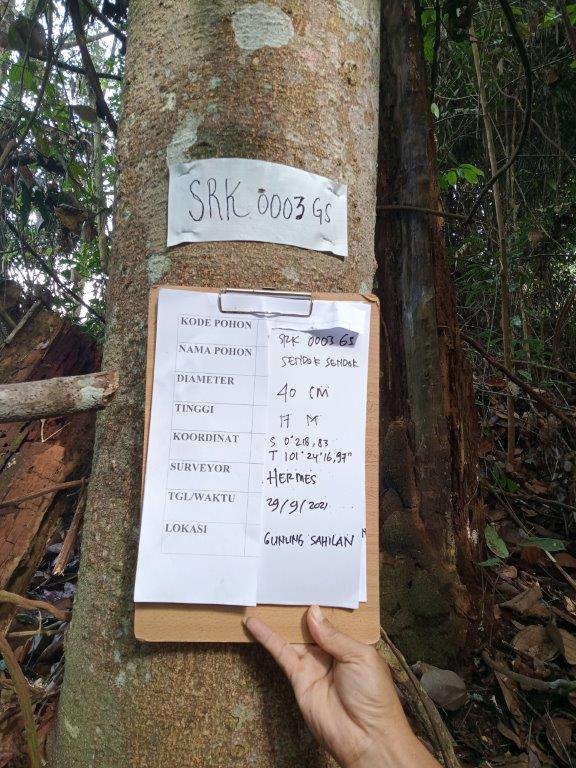 SRK 0003 GS
KODE POHON SRK 0003 GS
NAMA POHON SENDOK SENDOK
DIAMETER 40 CM
TINGGI 17 M
KOORDINAT S 0°218,83
T 101°24'16,97"
SURVEYOR HERMES
TGL/WAKTU 29/9/2021
LOKASI GUNUNG SAHILAN